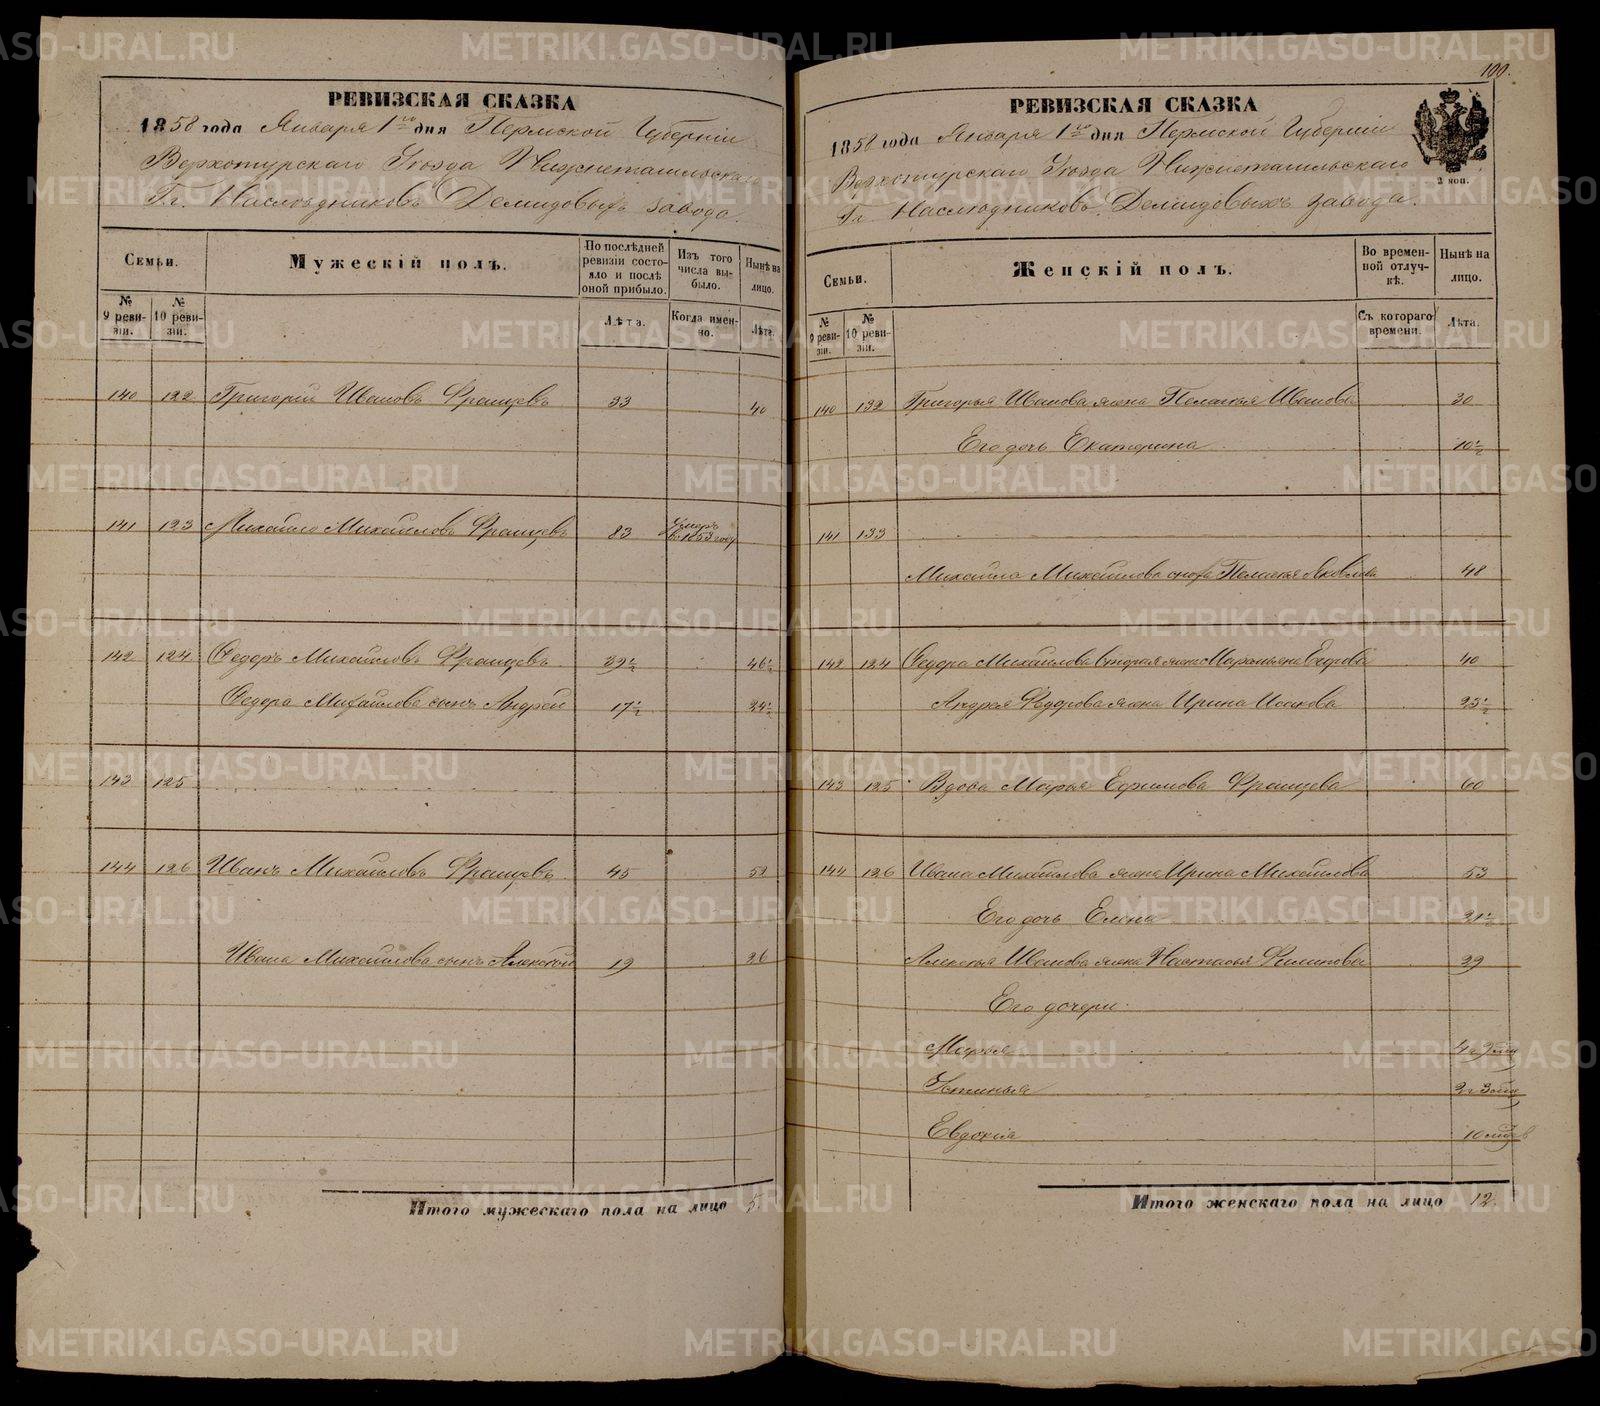 РЕВИЗСКАЯ СКАЗКА
1858 года Января 1го дня Пермской Губернии
Верхотурскаго Уѣзда Нижнетагильскаго
Гг. Наслѣдниковъ Демидовыхъ завода.
Семьи.
Мужескій полъ.
По послѣдней ревизіи состояло и послѣ оной прибыло.
Изъ того числа выбыло.
Нынѣ на лицо.
№ 9 ревизіи.
№ 10 ревизіи.
Лѣта.
Когда именно.
Лѣта.
140 122 Григорій Ивановъ 33 40
141 123 Михайло Михайловъ 83 Умеръ въ 1853 году
142 124 Федоръ Михайловъ 39½ 46½
Федора Михайлова сынъ Андрей 17½ 24½
143 125
144 126 Иванъ Михайловъ 45 52
Ивана Михайлова сынъ Алексѣй 19 26
Итого мужескаго пола на лицо 5.
100.
РЕВИЗСКАЯ СКАЗКА
1858 года Января 1го дня Пермской Губерніи
Верхотурскаго Уѣзда Нижнетагильскаго
Гг. Наслѣдниковъ Демидовыхъ завода.
2 коп.
Семьи.
Женскій полъ.
Во временной отлучкѣ.
Нынѣ на лицо.
№ 9 ревизіи.
№ 10 ревизіи.
Съ котораго времени.
Лѣта.
140 122 Григорья Иванова жена Пелагея Иванова 30
Его дочь Екатерина 10½
141 133
Михайла Михайлова сноха Пелагея Яковлева 48
142 124 Федора Михайлова вторая жена Маремьяна Егорова 40
Андрея Федорова жена Ирина Исакова 25½
143 125 Вдова Марья Ефимова 60
144 126 Ивана Михайлова жена Ирина Михайлова 53
Его дочь Елена 21½
Алексѣя Иванова жена Настасья Филипова 29
Его дочери:
Марья
Устинья
Евдокія
Итого женскаго пола на лицо 12.
METRIKI.GASO-URAL.RU